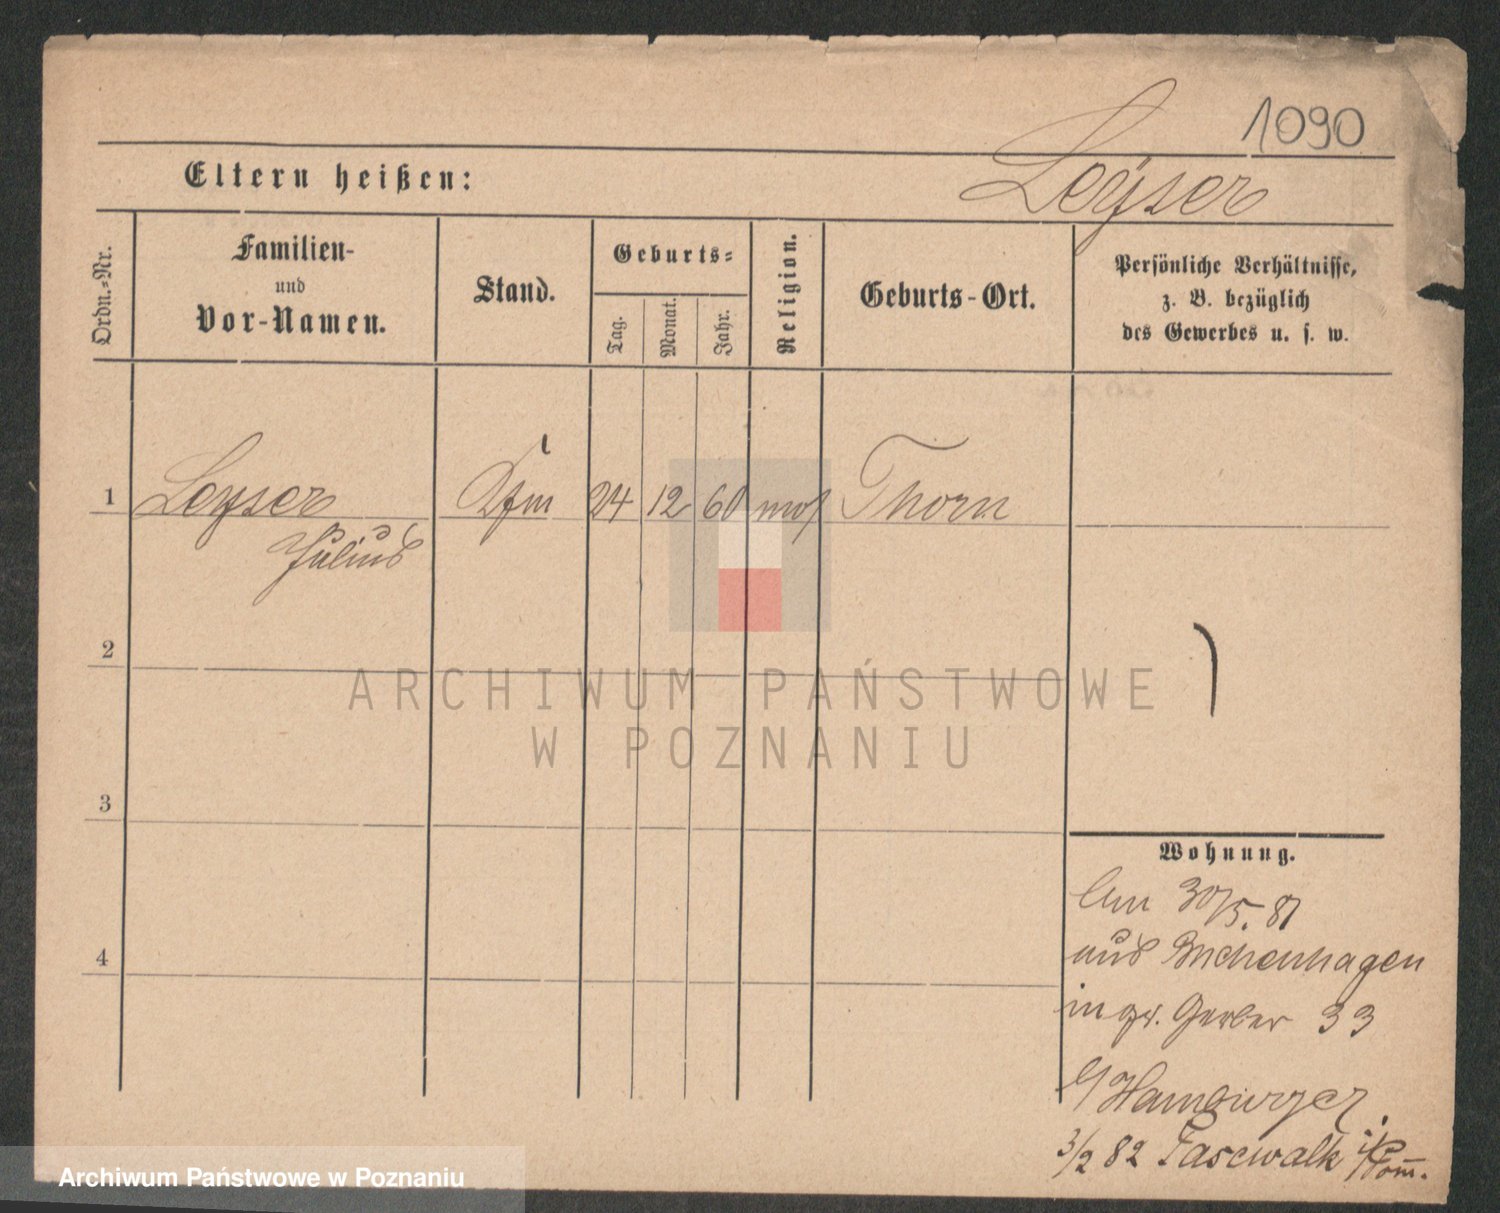 1090
Leyser
Eltern heißen:
Ordn.-Nr.
Familien-
und
Vor-Namen.
Stand.
Geburts-
Tag.
Monat.
Jahr.
Religion.
Geburts-Ort.
Persönliche Verhältnisse,
z. B. bezüglich
des Gewerbes u. s. w.
1 Leyser Kfm 24 12 60 mos Thorn
Julius
2
3
4
Wohnung.
Am 30/5. 81
aus Buchenhagen
in gr. Gerber 33
b/ Hamburger.
3/2 82 Pasewalk i/Pom.
ARCHIWUM PAŃSTWOWE
W POZNANIU
Archiwum Państwowe w Poznaniu